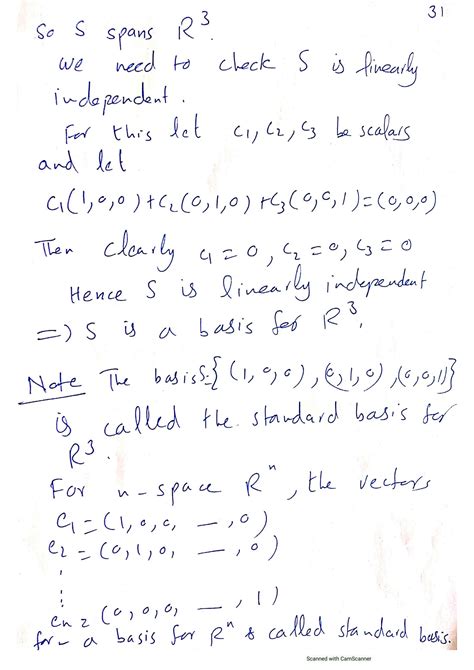 31
So S spans R³.
We need to check S is linearly
independent.
For this let c₁, c₂, c₃ be scalars
and let
c₁(1,0,0)+c₂(0,1,0)+c₃(0,0,1)=(0,0,0)
Then clearly c₁=0, c₂=0, c₃=0
Hence S is linearly independent
=) S is a basis for R³.
Note The basis S={(1,0,0),(0,1,0),(0,0,1)}
is called the standard basis for
R³.
For n-space Rⁿ, the vectors
e₁=(1,0,0, —,0)
e₂=(0,1,0, —,0)
⋮
en=(0,0,0, —,1)
for- a basis for Rⁿ & called standard basis.
Scanned with CamScanner